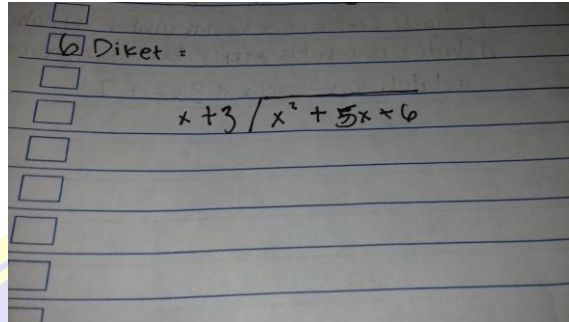 6 Diket =
x + 3 / x² + 5x + 6